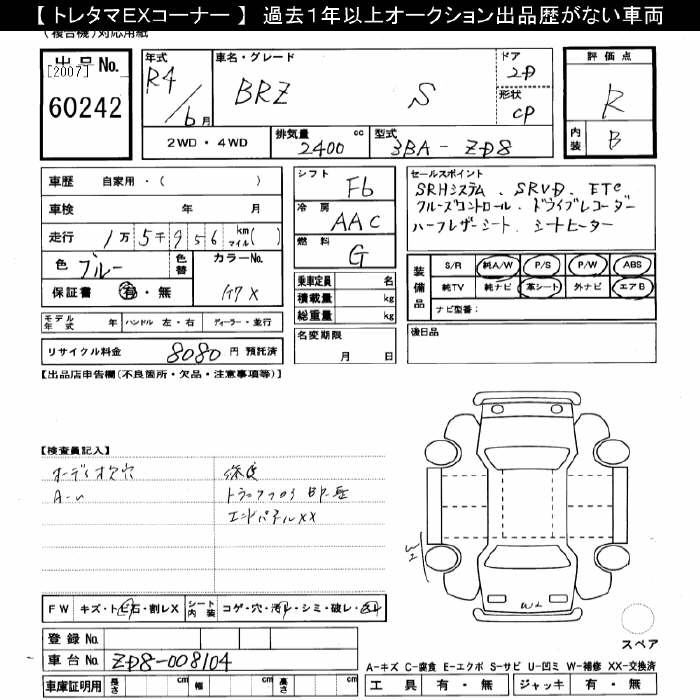 【トレタマEXコーナー】 過去1年以上オークション出品歴がない車両
(複合機)対応用紙
出品No.
[2007]
60242
年式
R4/6月
車名・グレード
BRZ S
ドア
2D
形状
CP
評価点
R
内装
B
2WD・4WD
排気量 2400 cc
型式 3BA-ZD8
車歴 自家用・( )
車検 年 月
走行 1万5千956 km マイル( )
色 ブルー
色替
カラーNo.
保証書 有・無
K7X
モデル年式 年 ハンドル 左・右 ディーラー・並行
リサイクル料金 8080 円 預託済
シフト F6
冷房 AAC
燃料 G
乗車定員 名
積載量 kg
総重量 kg
名変期限
月 日
セールスポイント
SRHシステム、SRVD、ETC
クルーズコントロール、ドライブレコーダー
ハーフレザーシート、シートヒーター
装備品
S/R 純A/W P/S P/W ABS
純TV 純ナビ 革シート 外ナビ エアB
ナビ型番:
後日品
【出品店申告欄(不良箇所・欠品・注意事項等)】
【検査員記入】
オーディオ欠穴
A-U
修復
エンドパネルXX
W2
W2
FW キズ・トビ石・割レX
シート内装 コゲ・穴・汚レ・シミ・破レ・スレ
登録No.
車台No. ZD8-008104
スペア
A-キズ C-腐食 E-エクボ S-サビ U-凹ミ W-補修 XX-交換済
車庫証明用 長さ cm 幅 cm 高さ cm
工具 有・無 ジャッキ 有・無